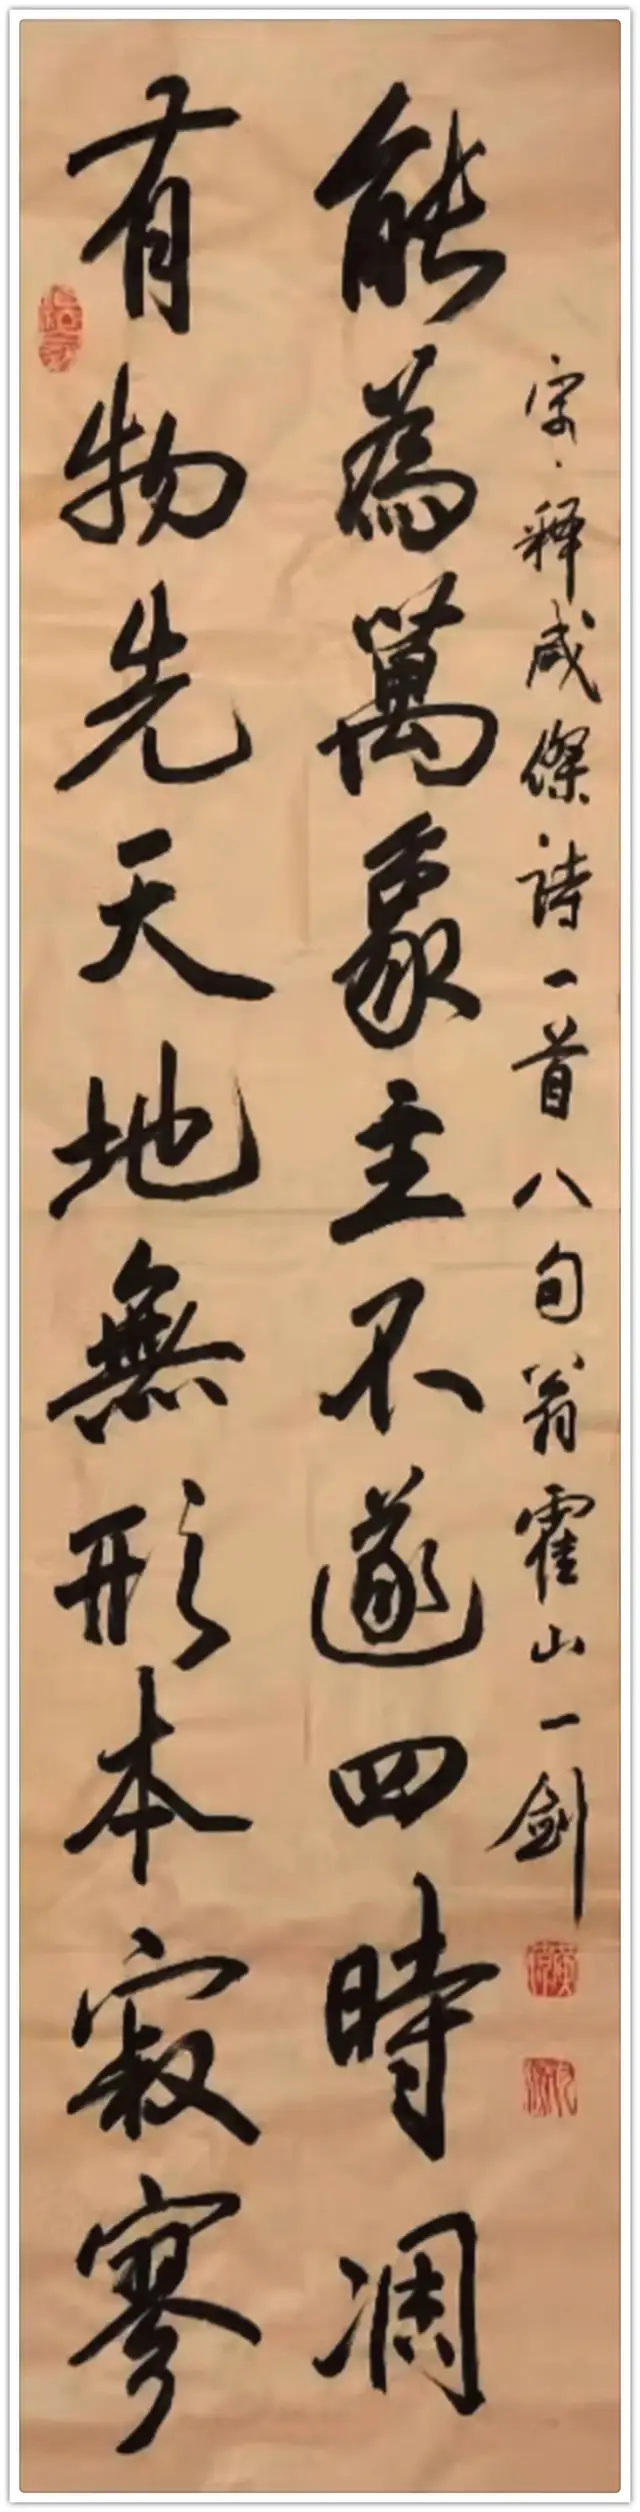 有物先天地無形本寂寥
能為萬象主不遂四時凋
宋·释咸傑詩一首八旬翁霍山一劍